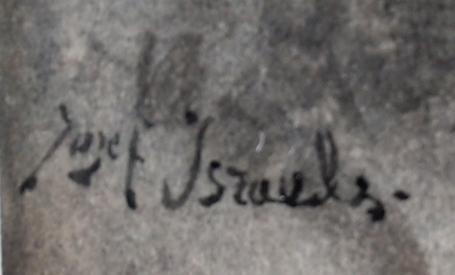 Jozef Israëls.